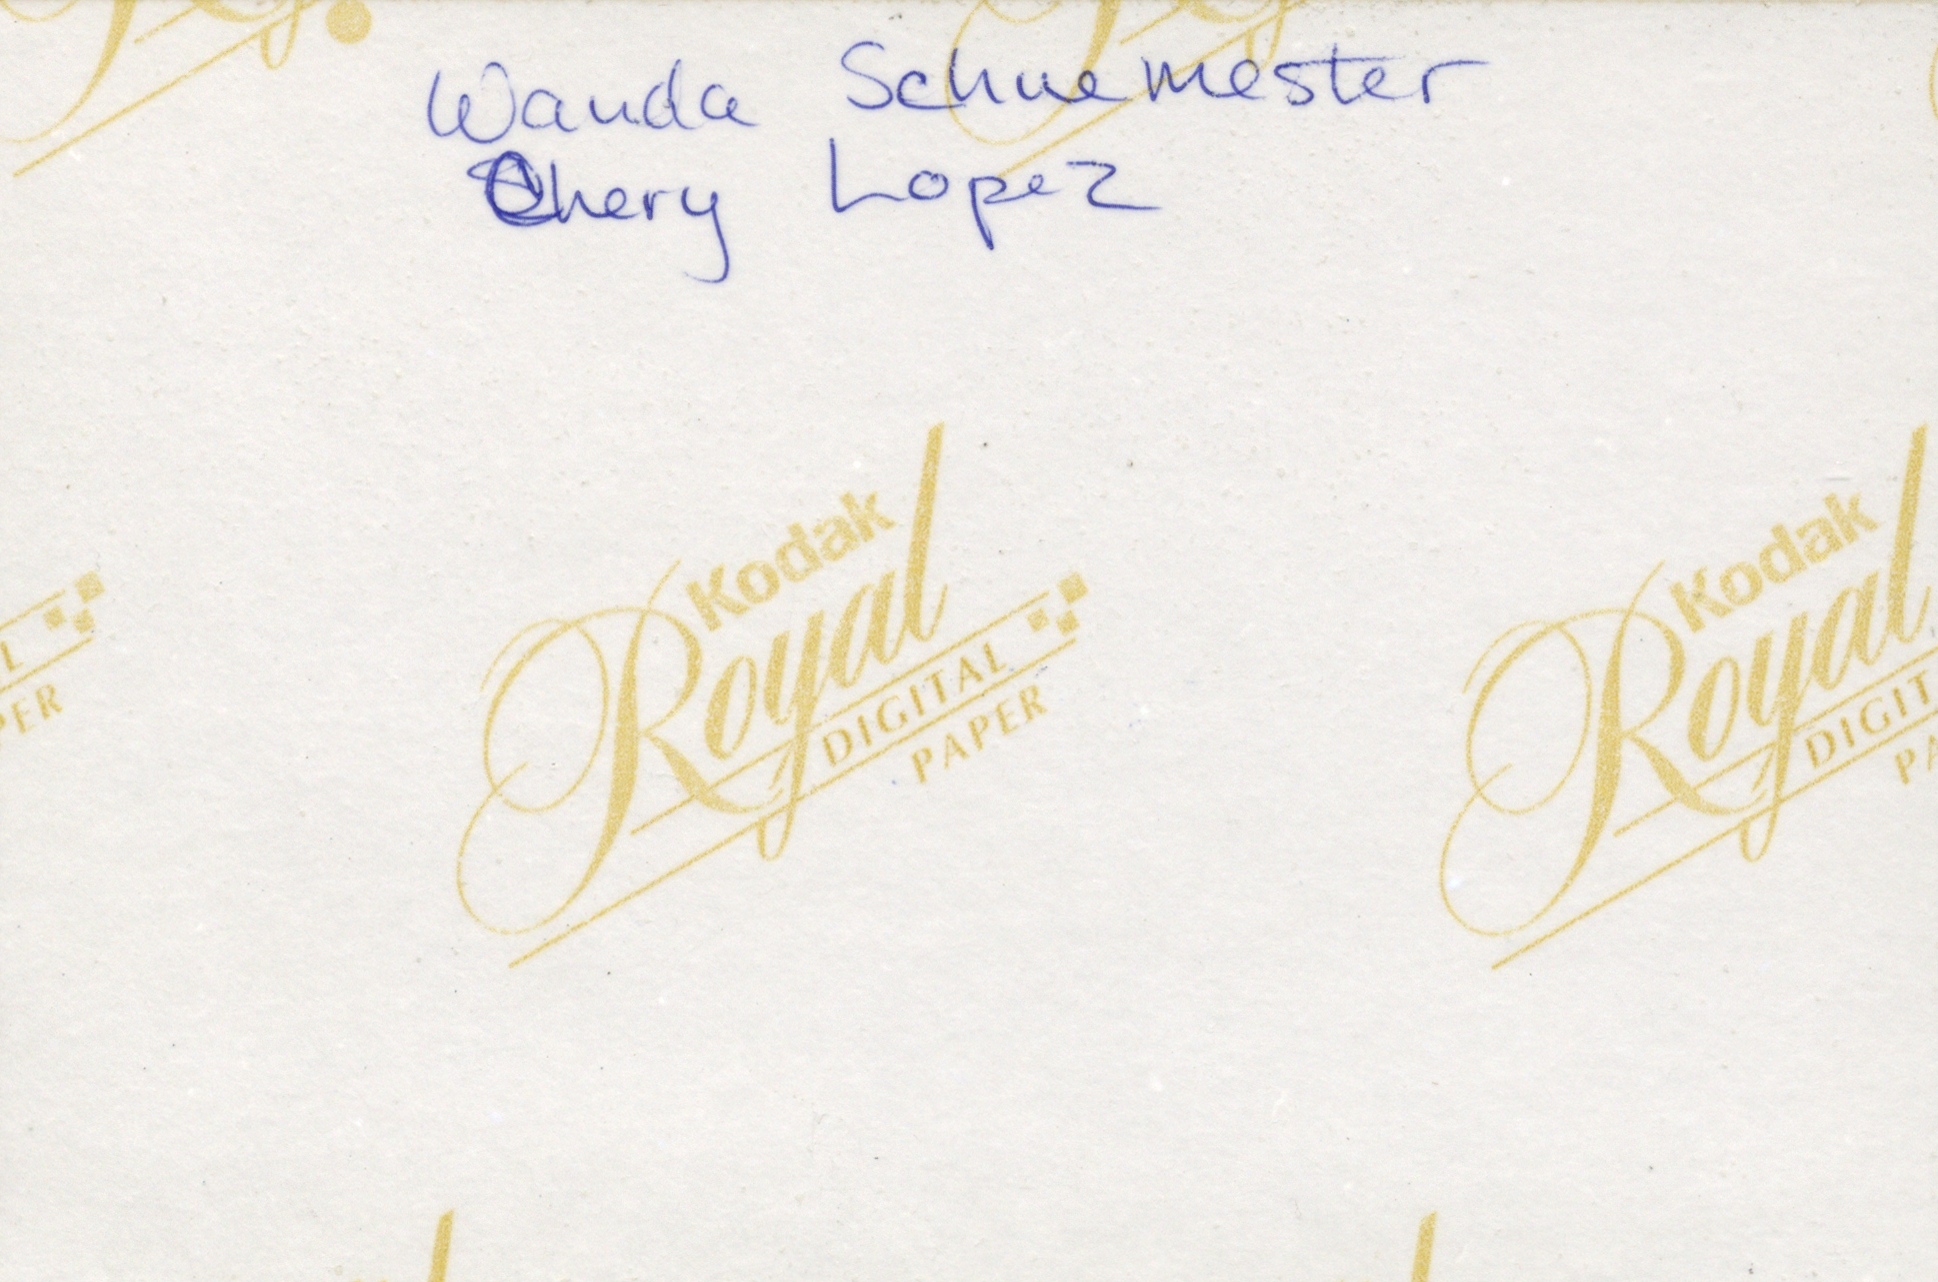 Wanda Schuemester
Chery Lopez
Kodak
Royal
DIGITAL
PAPER
Kodak
Royal
DIGIT
PA
L
PER